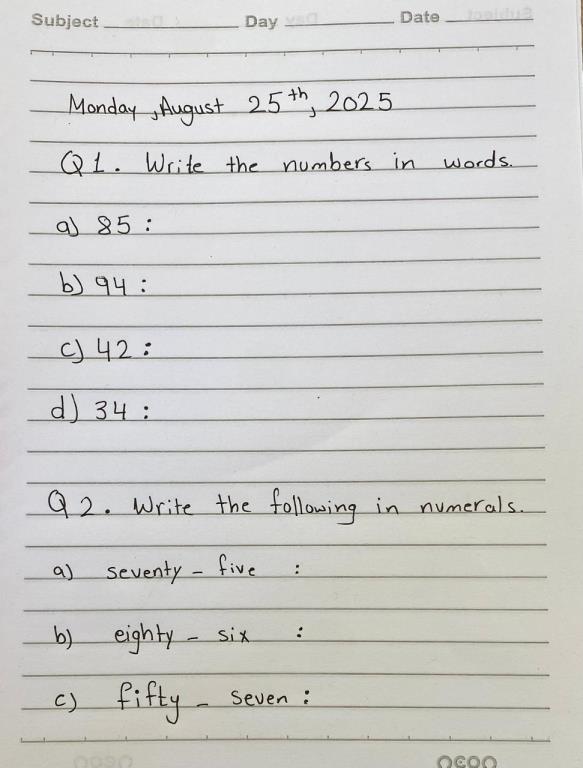 Subject Day Date
Monday, August 25th, 2025
Q1. Write the numbers in words.
a) 85 :
b) 94 :
c) 42 :
d) 34 :
Q2. Write the following in numerals.
a) seventy - five :
b) eighty - six :
c) fifty - seven :